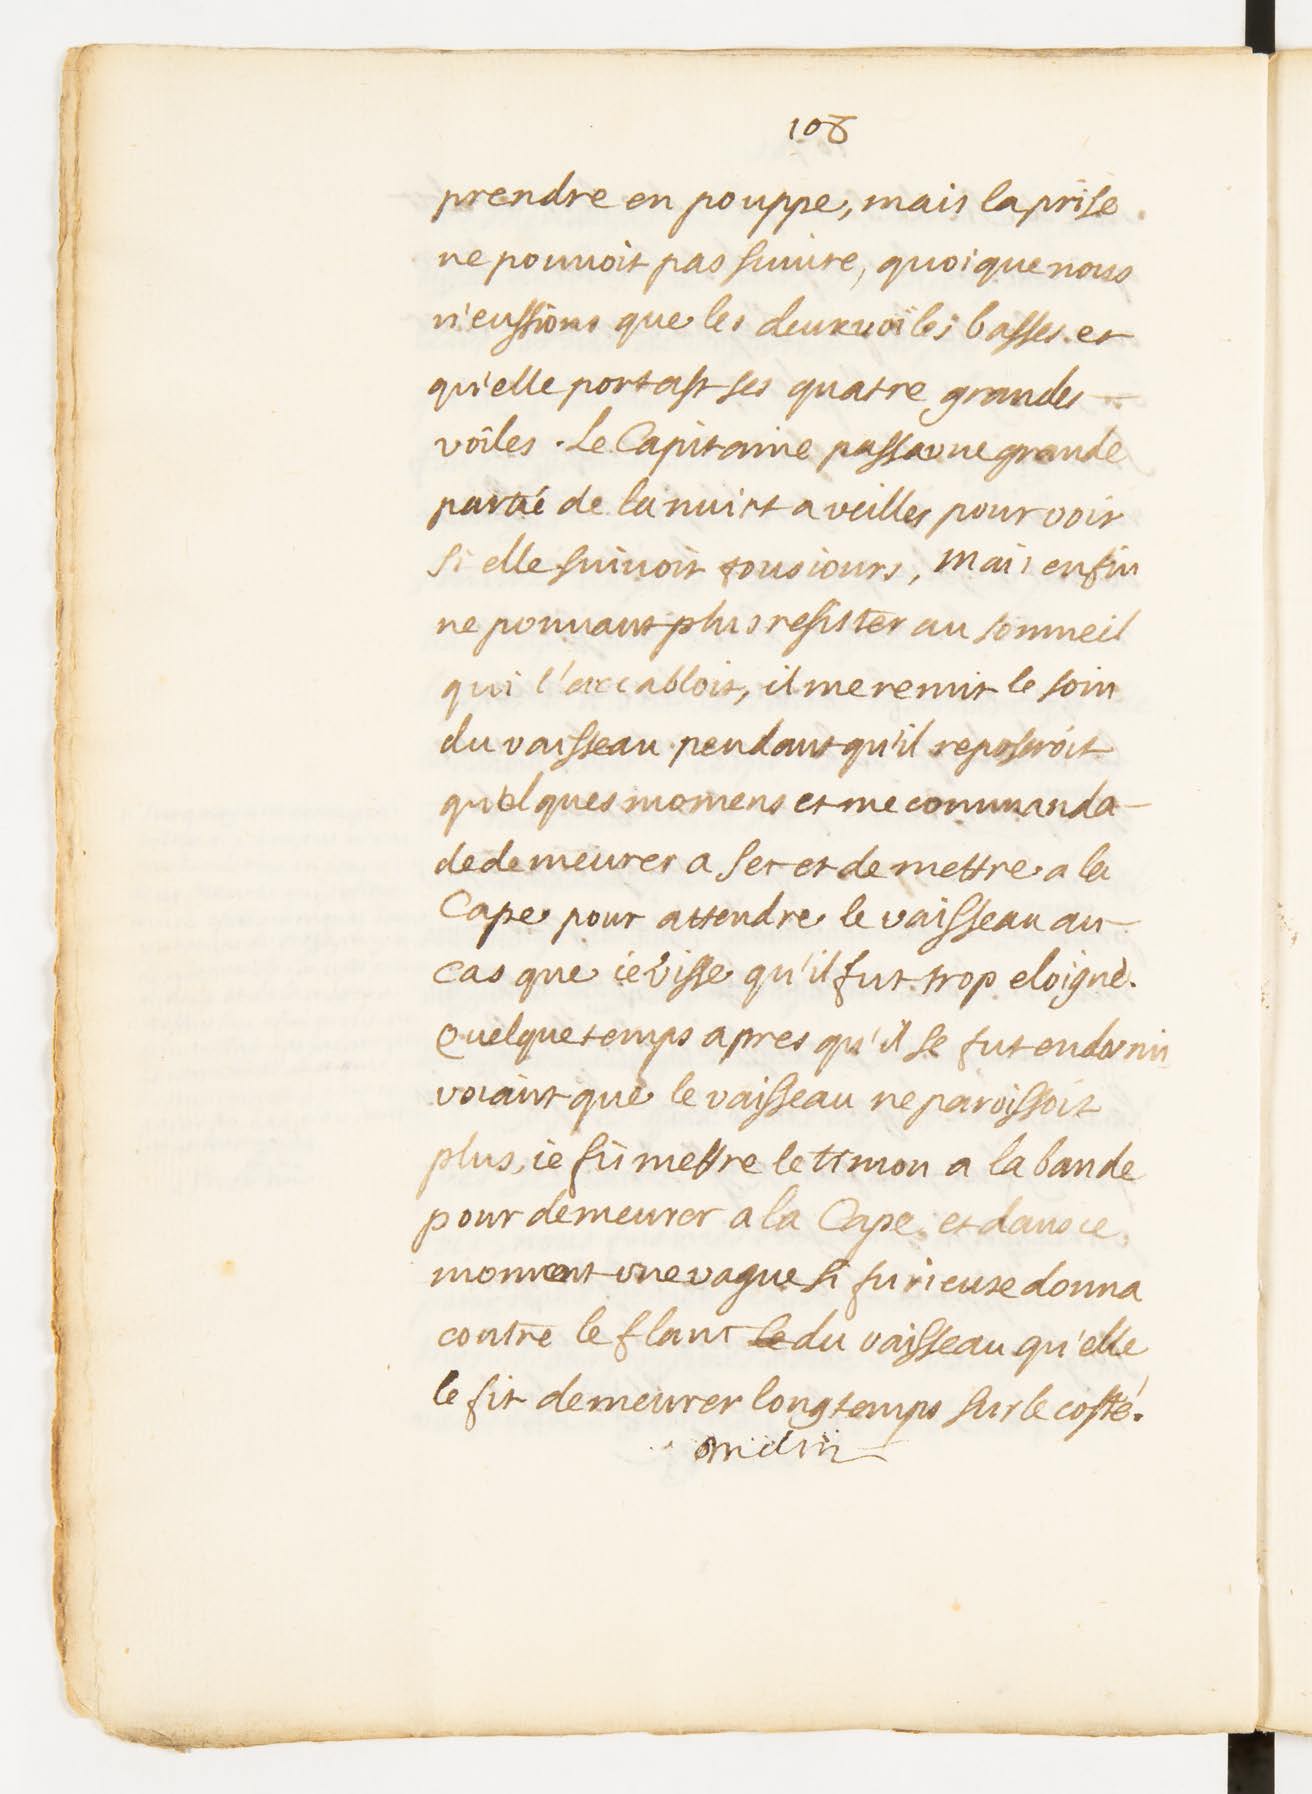 108
prendre en pouppe, mais la prise
ne pouuoit pas suiure, quoique nous
n'eussions que les deux uoiles basses. et
qu'elle portast ses quatre grandes
voiles. Le Capitaine passa une grande
partié de la nuict a veilles pour voir
si elle suiuoit tousiours, Mais enfin
ne pouuant plus resister au sommeil
qui l'accabloit, il me remit le soin
du vaisseau pendant qu'il reposeroit
quelques momens et me commanda
de demeurer a sec et de mettre a la
Cape pour attendre le vaisseau au
cas que ie visse qu'il fut trop eloigné.
Quelque temps apres qu'il se fut endormi
voiant que le vaisseau ne paroissoit
plus, ie fis mettre le timon a la bande
pour demeurer a la Cape. et dans ce
moment une vague si furieuse donna
contre le flanc le du vaisseau qu'elle
le fit demeurer longtemps sur le costé.